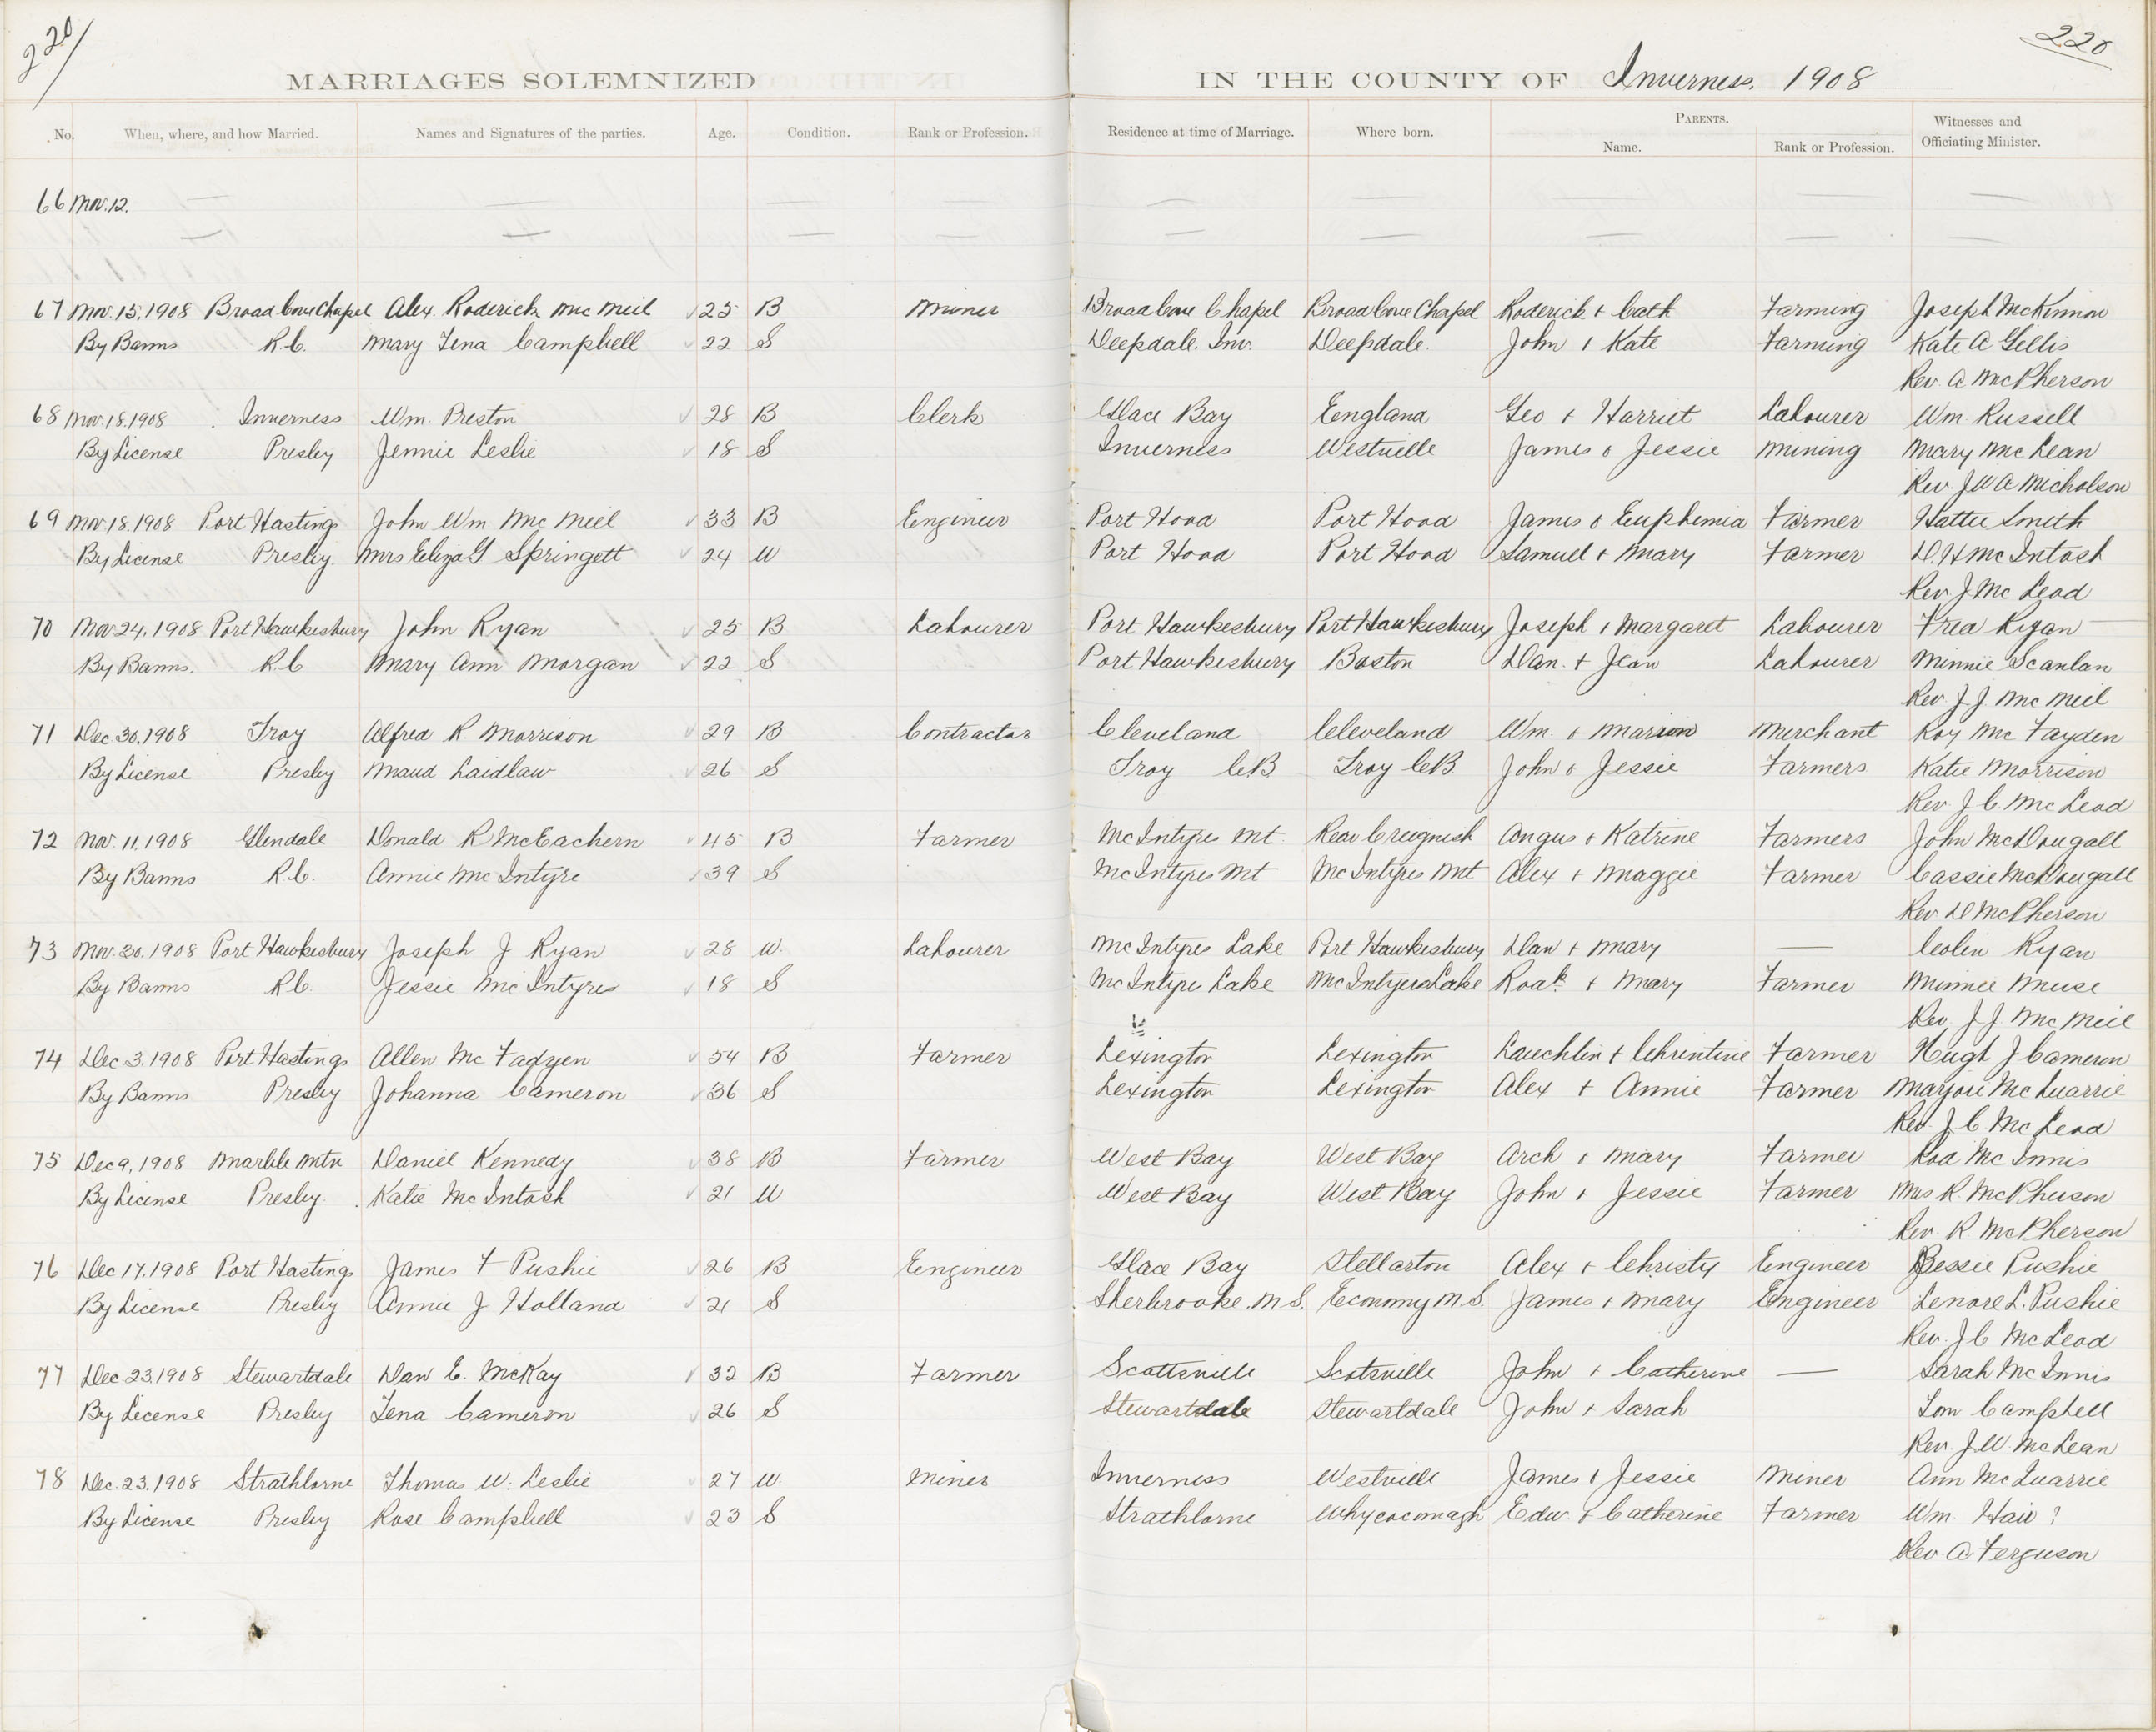 220/
220
MARRIAGES SOLEMNIZED IN THE COUNTY OF Inverness. 1908
No. When, where, and how Married. Names and Signatures of the parties. Age. Condition. Rank or Profession. Residence at time of Marriage. Where born. PARENTS. Name. Rank or Profession. Witnesses and Officiating Minister.
66 Nov. 12.
67 Nov. 15, 1908 Broad Cove Chapel Alex. Roderick McNeil 25 B Miner Broad Cove Chapel Broad Cove Chapel Roderick + Cath Farming Joseph McKinnon
By Banns R.C. Mary Tena Campbell 22 S Deepdale. Inv. Deepdale. John + Kate Farming Kate A Gillis
Rev. A McPherson
68 Nov. 18. 1908 Inverness Wm. Preston 28 B Clerk Glace Bay England Geo + Harriet Labourer Wm. Russell
By License Presby Jennie Leslie 18 S Inverness Westville James & Jessie Mining Mary McLean
Rev. J W A Nicholson
69 Nov. 18. 1908 Port Hastings John Wm McNeil 33 B Engineer Port Hood Port Hood James & Euphemia Farmer Hattie Smith
By License Presby. Mrs Eliza G Springett 24 W Port Hood Port Hood Samuel + Mary Farmer D. H McIntosh
Rev J McLeod
70 Nov 24, 1908 Port Hawkesbury John Ryan 25 B Labourer Port Hawkesbury Port Hawkesbury Joseph + Margaret Labourer Fred Ryan
By Banns. R.C Mary Ann Morgan 22 S Port Hawkesbury Boston Dan. + Jean Labourer Minnie Scanlan
Rev. J. J. McNeil
71 Dec. 30, 1908 Troy Alfred R. Morrison 29 B Contractor Cleveland Cleveland Wm. & Marion Merchant Roy McFayden
By License Presby Maud Laidlaw 26 S Troy C.B Troy C.B. John & Jessie Farmers Katie Morrison
Rev. J. C. McLeod
72 Nov. 11, 1908 Glendale Donald R McEachern 45 B Farmer McIntyres Mt. Rear Creignish Angus & Katrine Farmers John McDougall
By Banns R.C. Annie McIntyre 39 S McIntyres Mt McIntyres Mt Alex + Maggie Farmer Cassie McDougall
Rev. D McPherson
73 Nov. 30, 1908 Port Hawkesbury Joseph J Ryan 28 W. Labourer McIntyres Lake Port Hawkesbury Dan + Mary — Colin Ryan
By Banns R.C. Jessie McIntyre 18 S McIntyre Lake McIntyres Lake + Mary Farmer Minnie Meuse
Rev. J J McNeil
74 Dec. 3. 1908 Port Hastings Allen McFadyen 54 B Farmer Lexington Lexington Lauchlin + Christine Farmer Hugh J Cameron
By Banns Presby Johanna Cameron 36 S Lexington Lexington Alex + Annie Farmer McQuarrie
Rev. J. C McLeod
75 Dec 9, 1908 Marble Mtn Daniel Kennedy 38 B Farmer West Bay West Bay Arch + Mary Farmer Rod McInnis
By License Presby. Katie McIntosh 21 W West Bay West Bay John + Jessie Farmer Mrs R. McPherson
Rev. R. McPherson
76 Dec 17. 1908 Port Hastings James F Pushie 26 B Engineer Glace Bay Stellarton Alex + Christy Engineer Bessie Pushie
By License Presby Annie J Holland 21 S Sherbrooke. N S. Economy N.S. James + Mary Engineer Lenore L. Pushie
Rev. J C McLeod
77 Dec 23. 1908 Stewartdale Dan E. McKay 32 B Farmer Scottsville Scotsville John + Catherine — Sarah McInnis
By License Presby Tena Cameron 26 S Stewartdale Stewartdale John + Sarah Tom Campbell
Rev. J. W. McLean
78 Dec. 23. 1908 Strathlorne Thomas W. Leslie 27 W. Miner Inverness Westville James & Jessie Miner Ann McQuarrie
By License Presby Rose Campbell 23 S Strathlorne Whycocomagh Edw. & Catherine Farmer Wm. Hair ?
Rev. A Ferguson